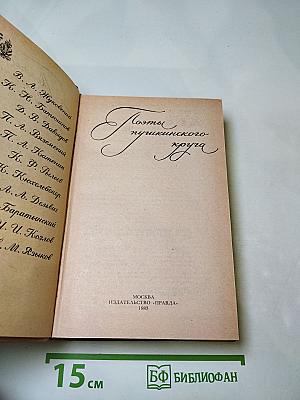 В. А. Жуковский
К. Н. Батюшков
Д. В. Давыдов
П. А. Вяземский
П. А. Катенин
К. Ф. Рылеев
К. Кюхельбекер
А. А. Дельвиг
Баратынский
И. И. Козлов
М. Языков
Поэты
пушкинского
круга
МОСКВА
ИЗДАТЕЛЬСТВО «ПРАВДА»
1983
15 см
БФ БИБЛИОФАН